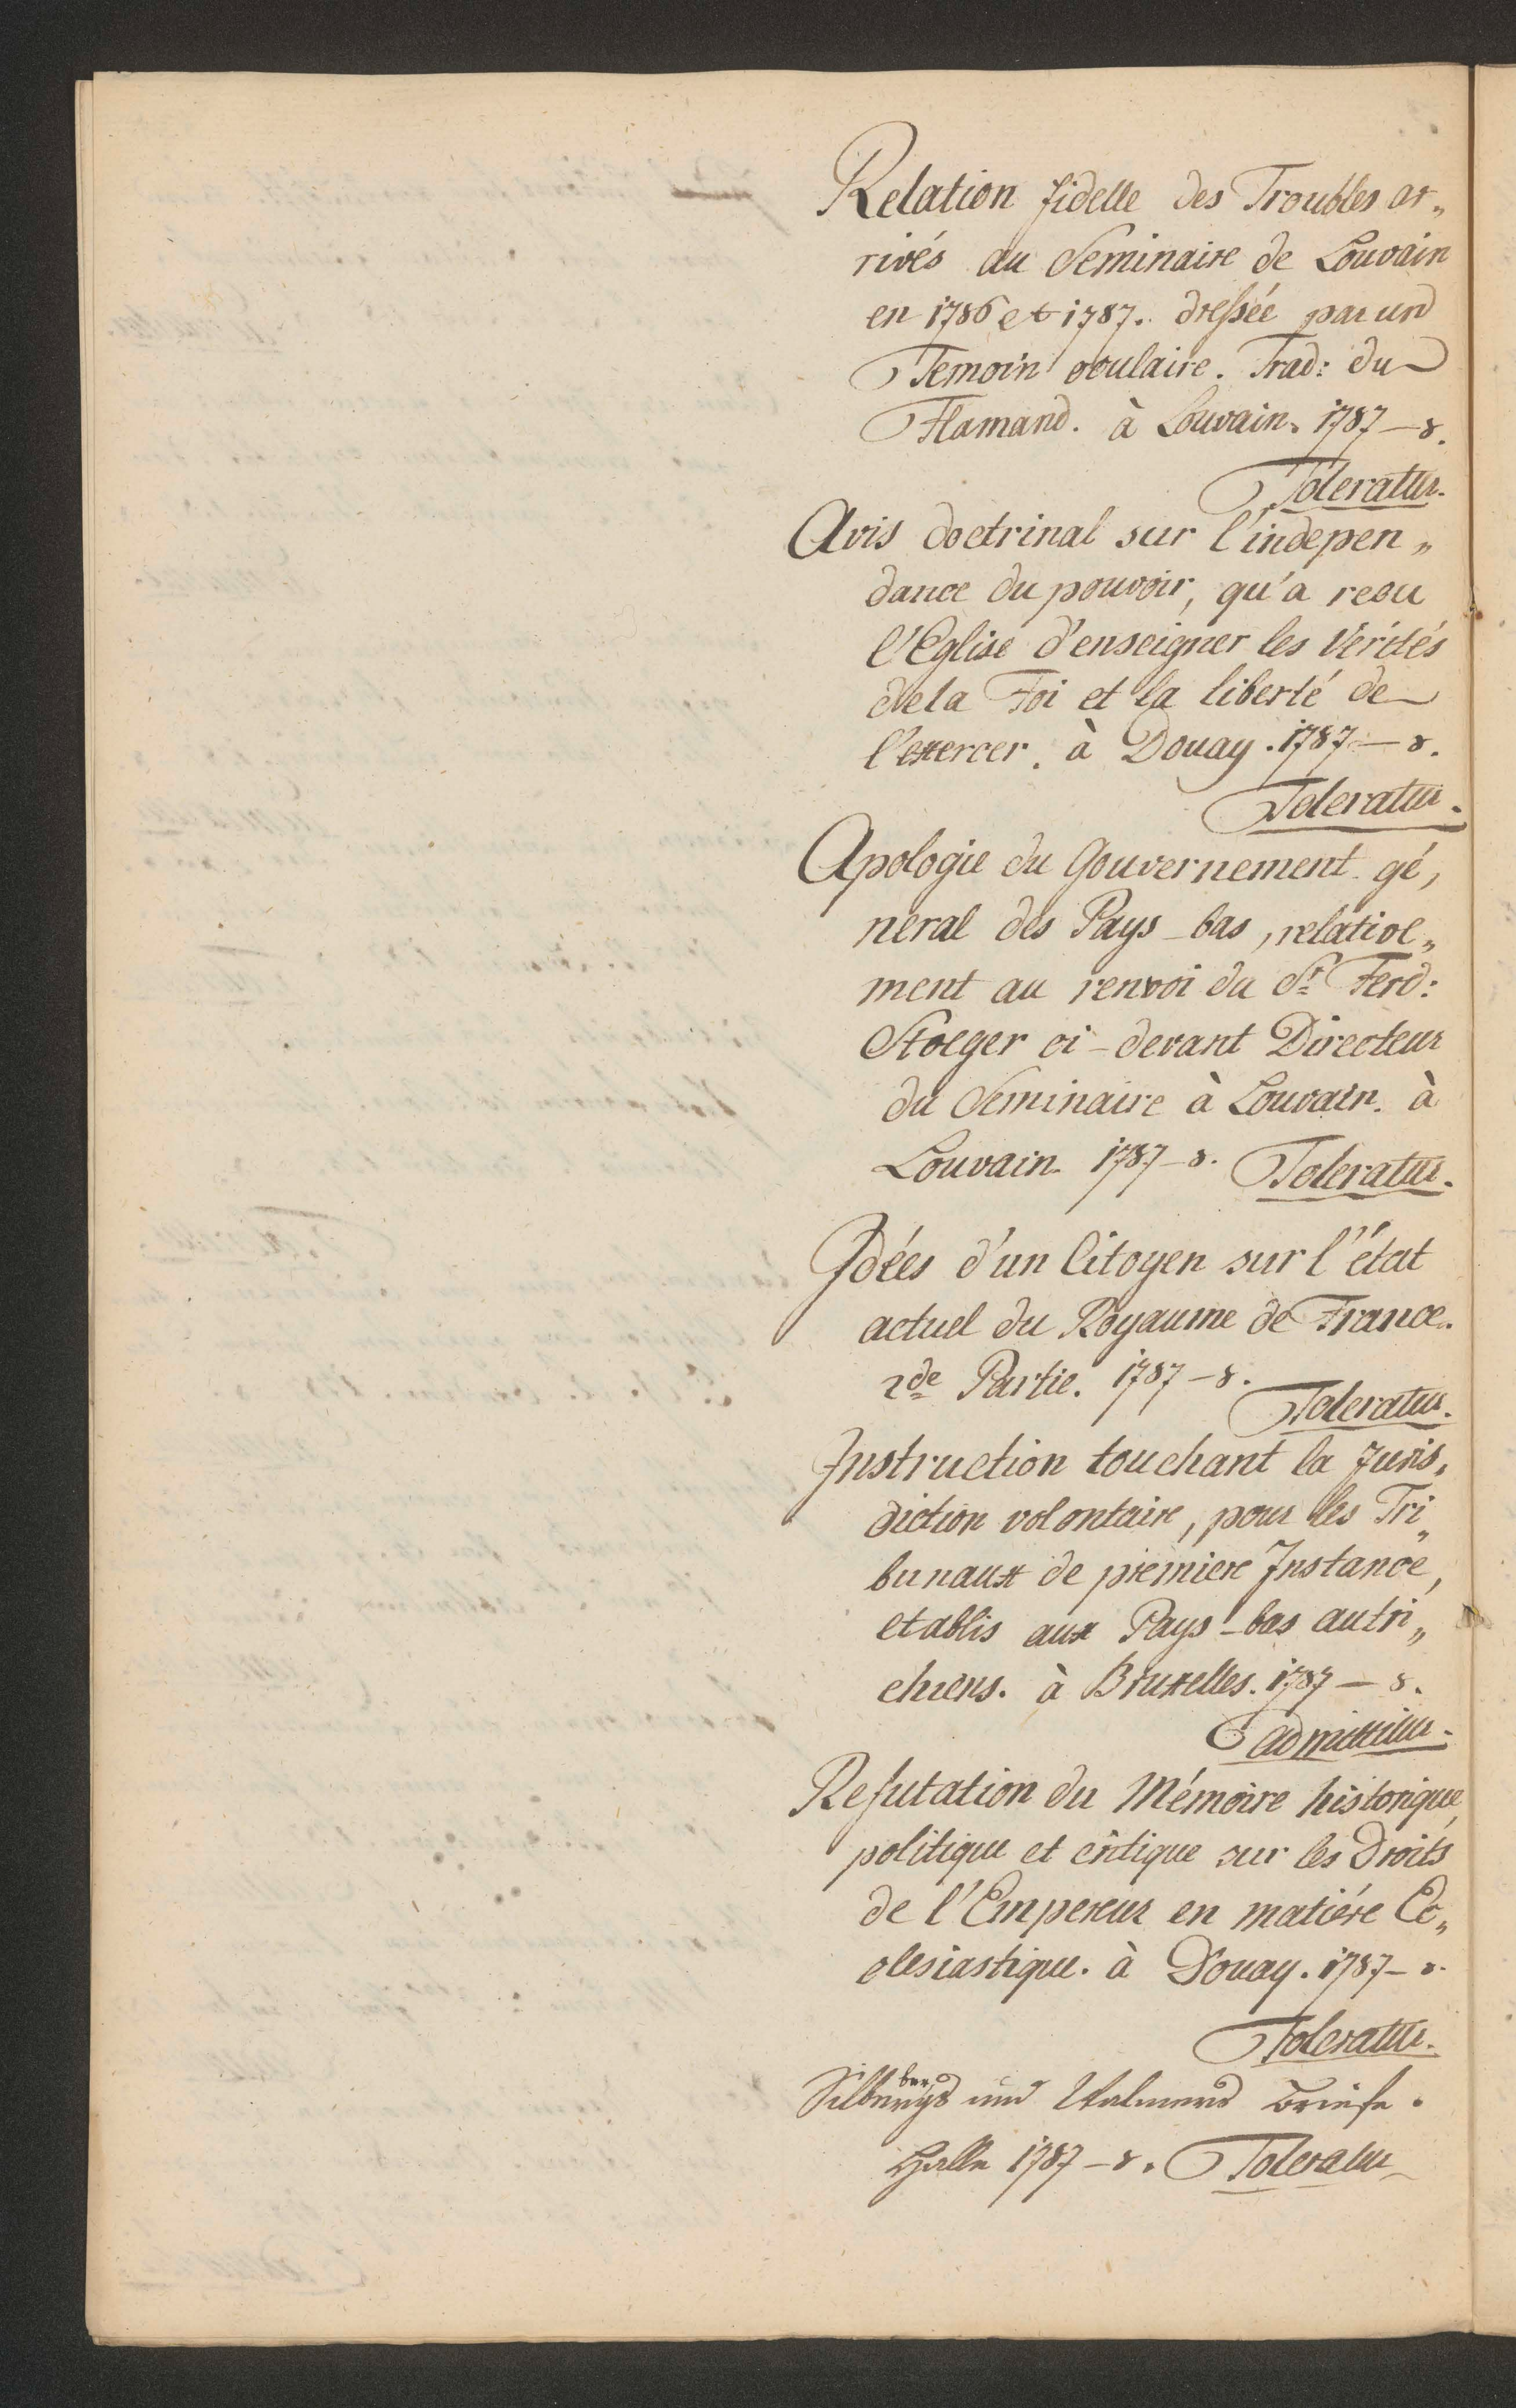 Relation fidelle des Troubles ar„
rivés au Seminaire de Louvain
en 1786 et 1787. dressée par un
Temoin oculaire. Trad: du
Flamand. à Louvain. 1787 – 8.
Toleratur.
Avis doctrinal sur l'indepen„
dance du pouvoir, qu'a recu
l'Eglise d'enseigner les Verités
de la Foi et la liberté de
l'exercer. à Douay. 1787 – 8.
Toleratur.
Apologie du Gouvernement gé,
neral des Pays-bas, relative„
ment au renvoi du Sr Ferd:
Stoeger ci-devant Directeur
du Seminaire à Louvain. à
Louvain. 1787 – 8. Toleratur.
Idées d'un Citoyen sur l'état
actuel du Royaume de France.
2de Partie. 1787 – 8.
Toleratur.
Instruction touchant la Juris„
diction volontaire, pour les Tri„
bunaux de premiere Instance,
etablis aux Pays-bas autri„
chiens. à Bruxelles. 1787 – 8.
admittitur.
Refutation du Mémoire historique,
politique et critique sur les Droits
de l'Empereur en matiére Ec„
clesiastique. à Douay. 1787 – 8.
Toleratur.
und Briefe.
Halle 1787 – 8. Toleratur